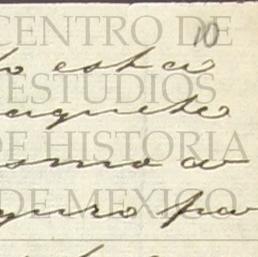 CENTRO DE
10
lo esta
ESTUDIOS
aquete
DE HISTORIA
ismo a
DE MEXICO
guro pa